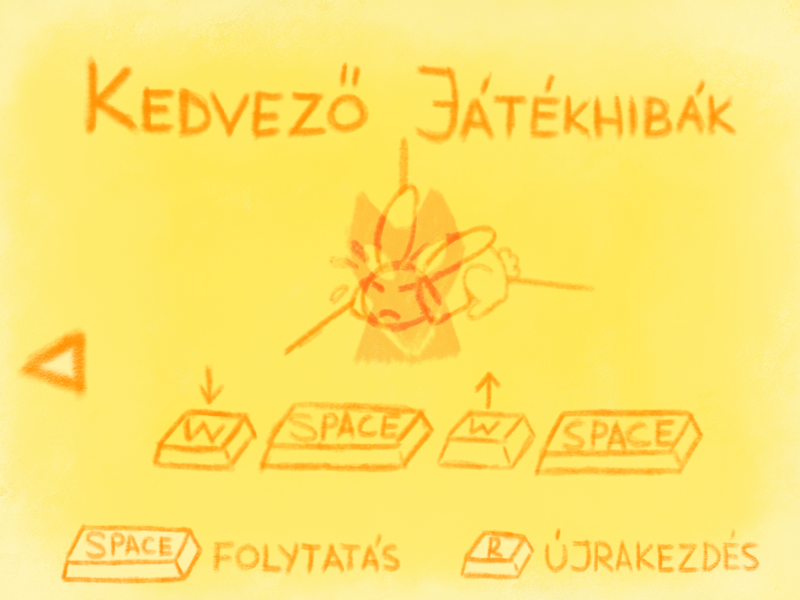 KEDVEZŐ JÁTÉKHIBÁK
W SPACE W SPACE
SPACE FOLYTATÁS R ÚJRAKEZDÉS